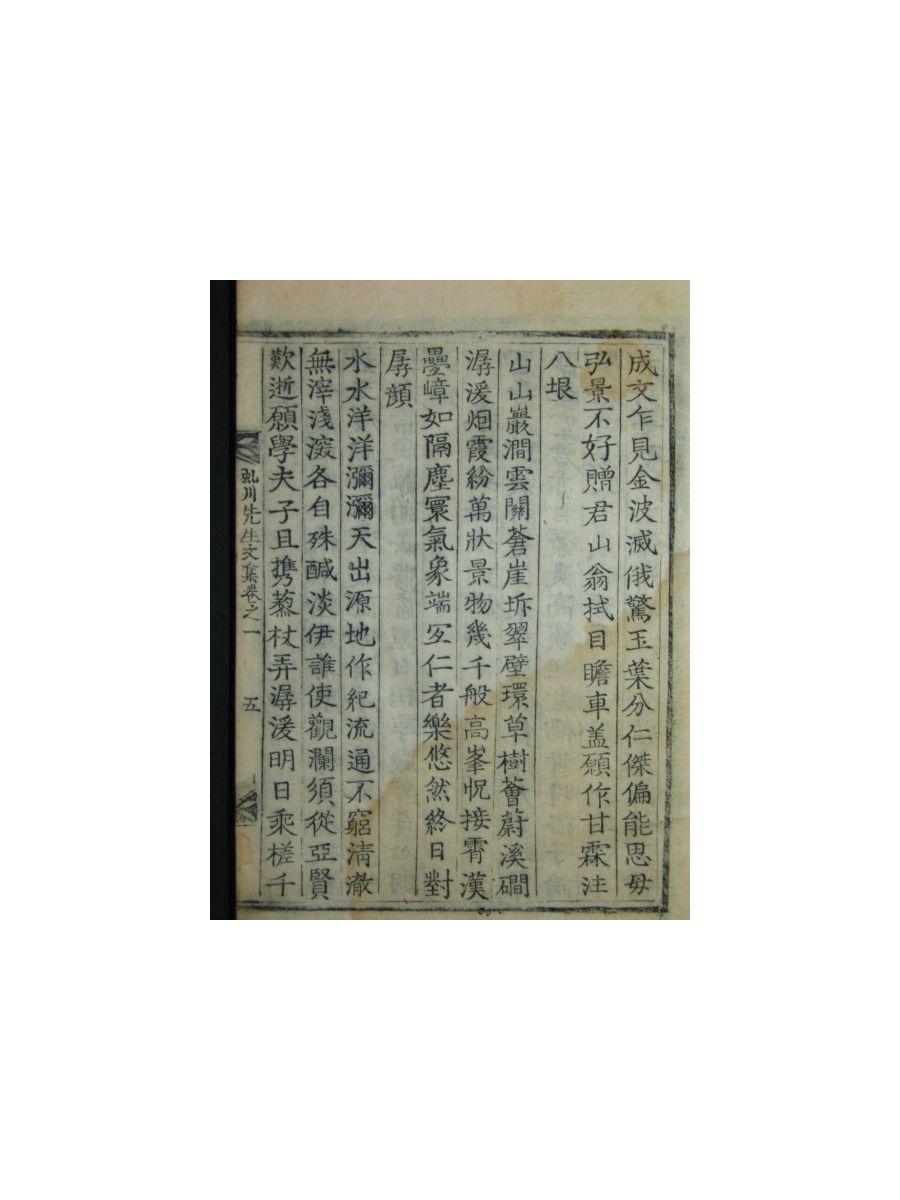 成文乍見金波滅俄驚玉葉分仁傑偏能思毋
弘景不好贈君山翁拭目瞻車盖願作甘霖注
八垠
山山巖澗雲關蒼崖坼翠壁環草樹薈蔚溪磵
潺湲烟霞紛萬狀景物幾千般高峯怳接霄漢
疊嶂如隔塵寰氣象端宜仁者樂悠然終日對
孱顔
水水洋洋瀰瀰天出源地作紀流通不窮清澈
無滓淺深各自殊醎淡伊誰使觀瀾須從亞賢
歎逝願學夫子且携藜杖弄潺湲明日乘槎千
虬川先生文集卷之一 五